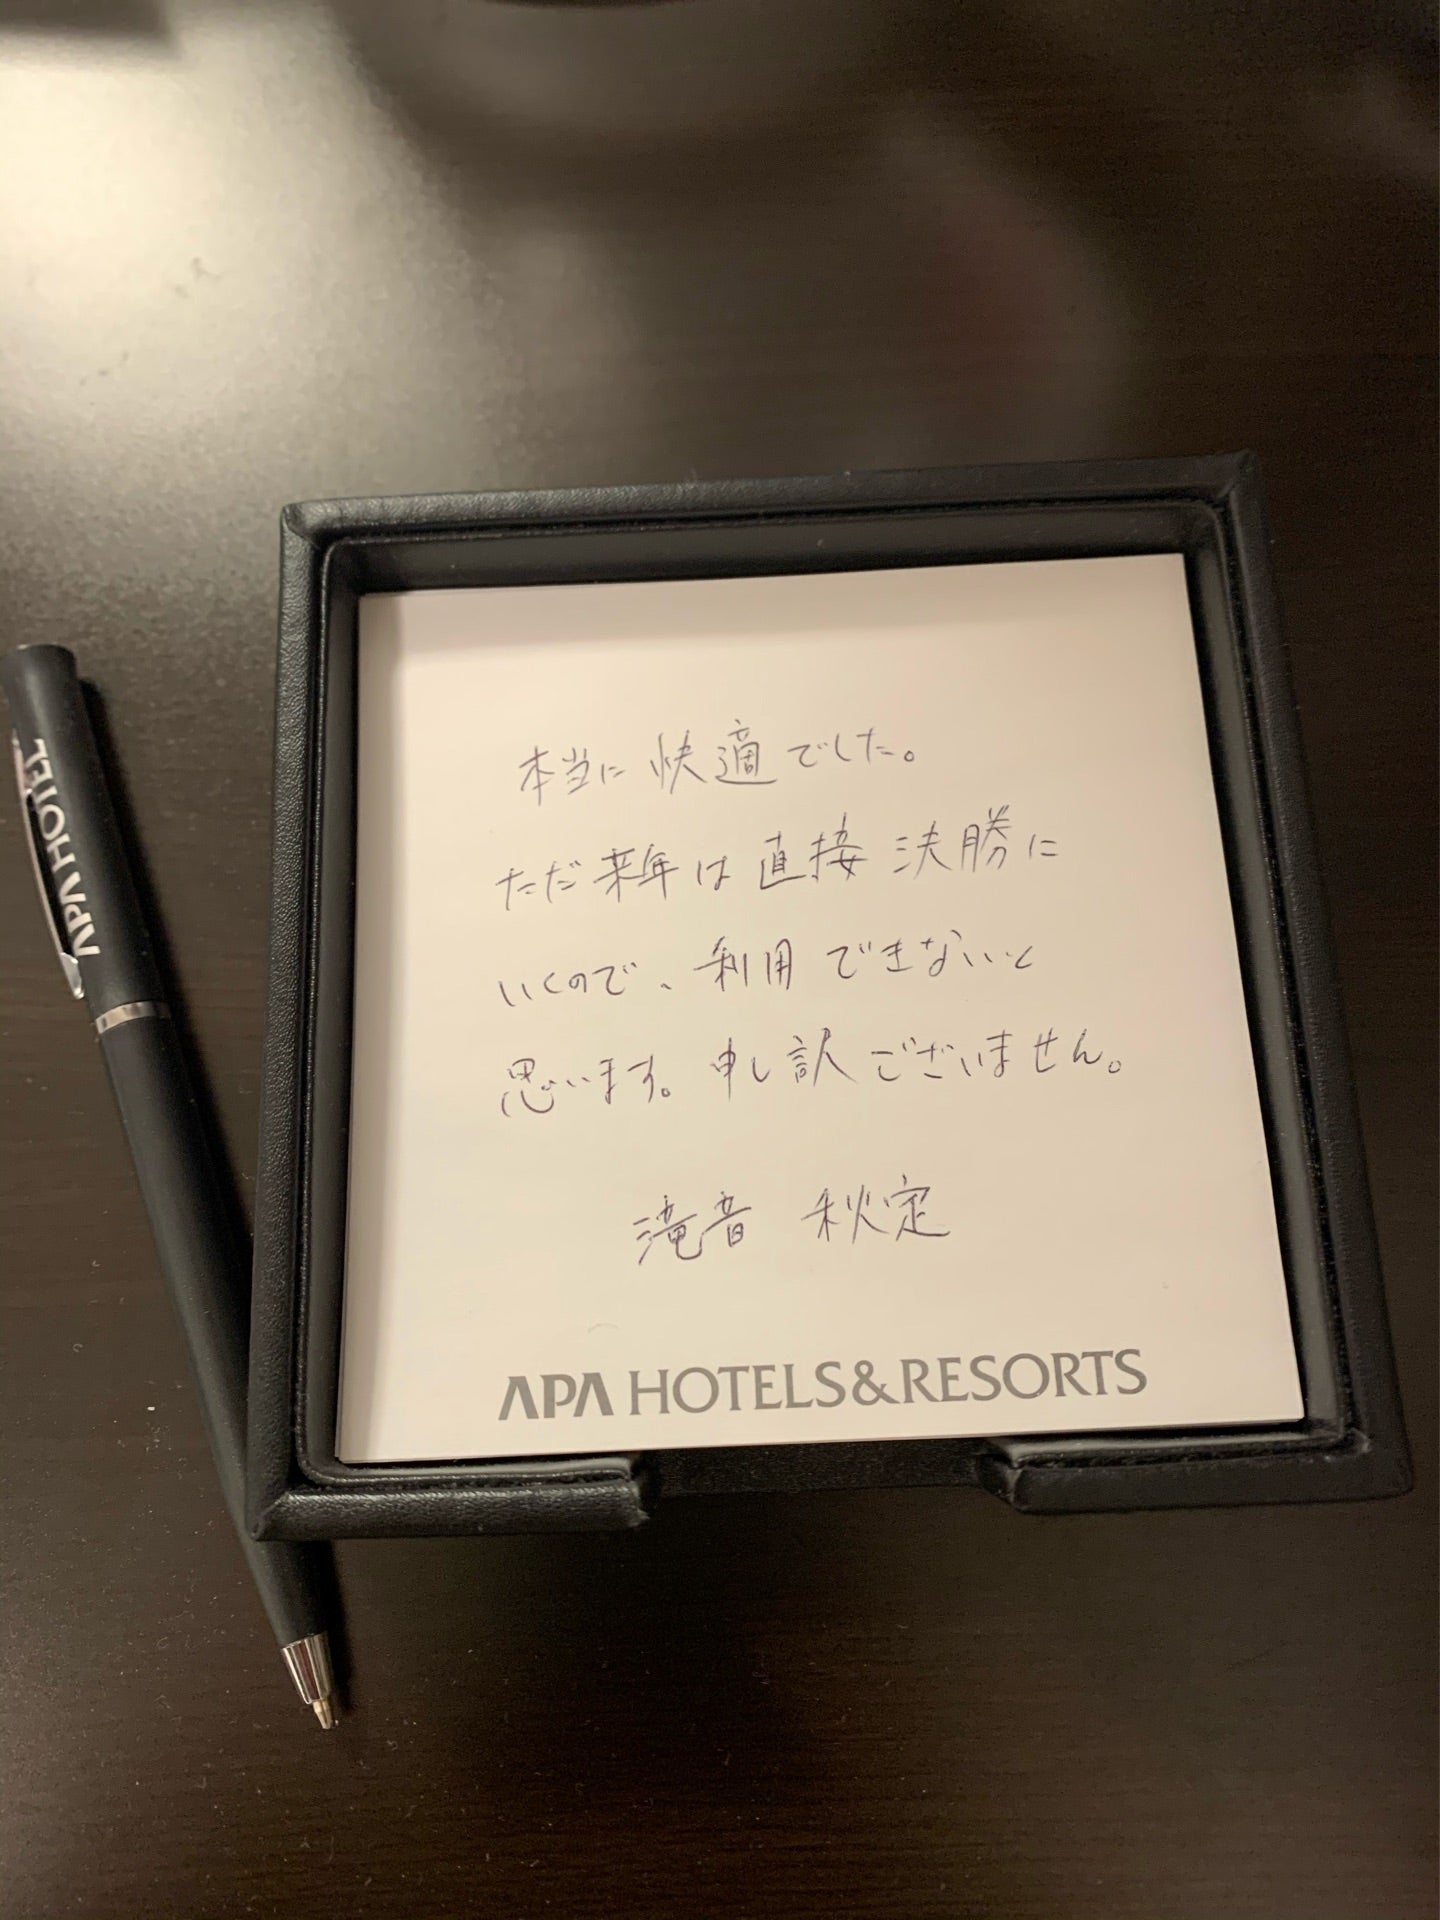 本当に快適でした。
ただ来年は直接決勝に
いくので、利用できないと
思います。申し訳ございません。
滝音 秋定
APA HOTELS&RESORTS
APA HOTEL